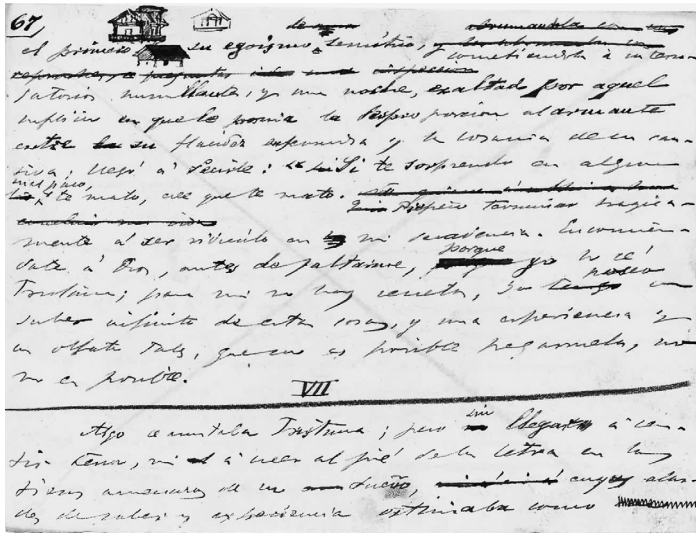 67,
el primero su egoismo senil, sometiendola á interro-
gatorio humillante, y una noche, exaltado por aquel
suplicio en que le ponia la desproporcion alarmante
entre su flacidez enfermiza y la lozania de su cau-
tiva, llegó á decirle: "Si te sorprendo en algun
mal paso, te mato, cree que te mato. Prefiero terminar trágica-
mente á ser ridículo en mi decadencia. Encomién-
date á Dios, antes de faltarme, porque yo lo sé
Tristana; para mi no hay secretos, poseo un
saber infinito de estas cosas, y una experiencia y
un olfato tales, que no es posible pegármela, no
no es posible.
VII
Algo se asustaba Tristana; pero sin llegar á sen-
tir terror, ni á creer al pié de la letra en las
fieras amenazas de su dueño, cuyos alar-
des de saber y experiencia estimaba como